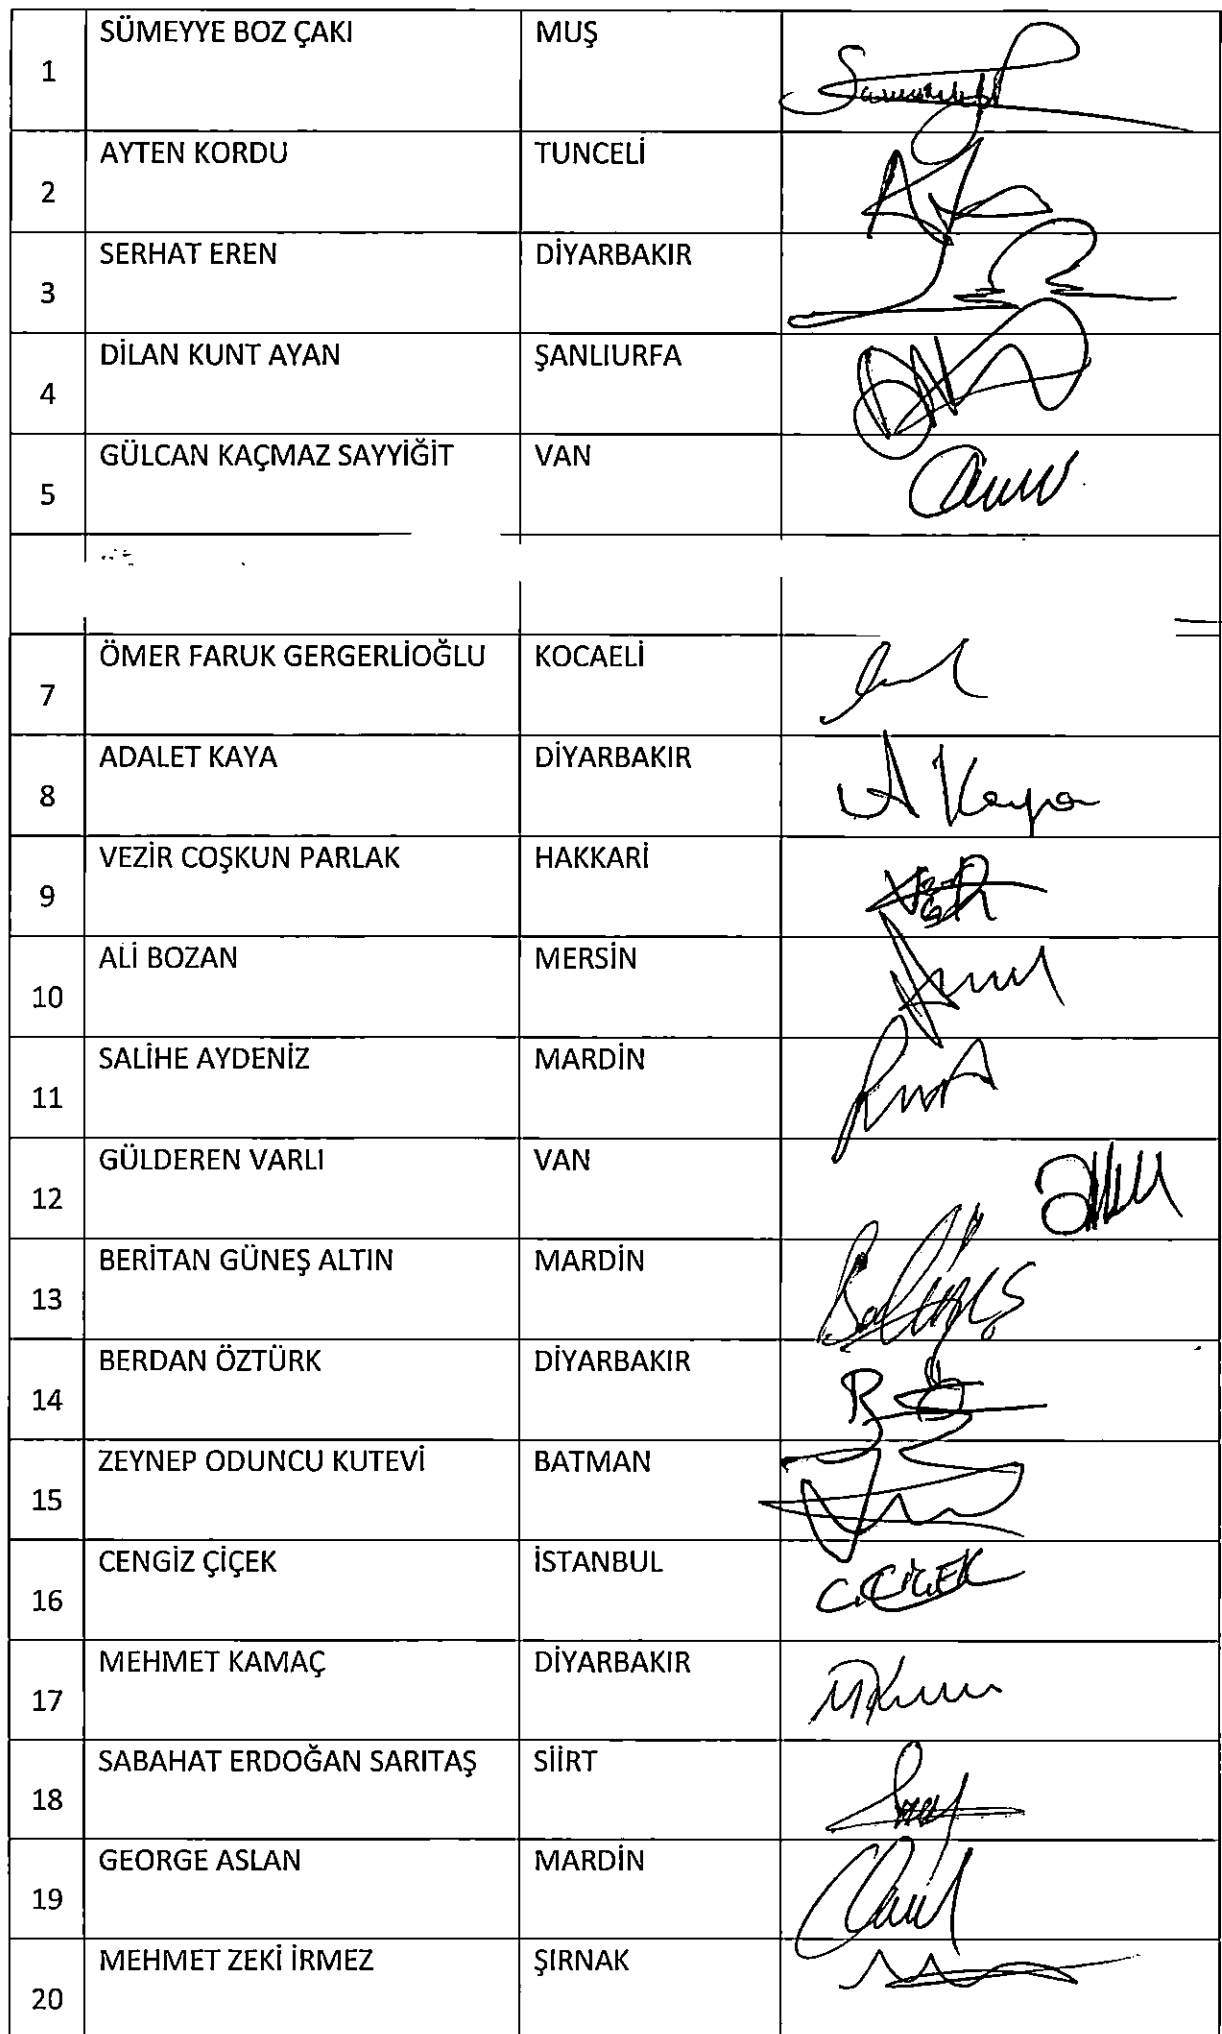 1 SÜMEYYE BOZ ÇAKI MUŞ
2 AYTEN KORDU TUNCELİ
3 SERHAT EREN DİYARBAKIR
4 DİLAN KUNT AYAN ŞANLIURFA
5 GÜLCAN KAÇMAZ SAYYİĞİT VAN
7 ÖMER FARUK GERGERLİOĞLU KOCAELİ
8 ADALET KAYA DİYARBAKIR A Kaya
9 VEZİR COŞKUN PARLAK HAKKARİ
10 ALİ BOZAN MERSİN
11 SALİHE AYDENİZ MARDİN
12 GÜLDEREN VARLI VAN
13 BERİTAN GÜNEŞ ALTIN MARDİN
14 BERDAN ÖZTÜRK DİYARBAKIR
15 ZEYNEP ODUNCU KUTEVİ BATMAN
16 CENGİZ ÇİÇEK İSTANBUL C.ÇİÇEK
17 MEHMET KAMAÇ DİYARBAKIR
18 SABAHAT ERDOĞAN SARITAŞ SİİRT
19 GEORGE ASLAN MARDİN
20 MEHMET ZEKİ İRMEZ ŞIRNAK